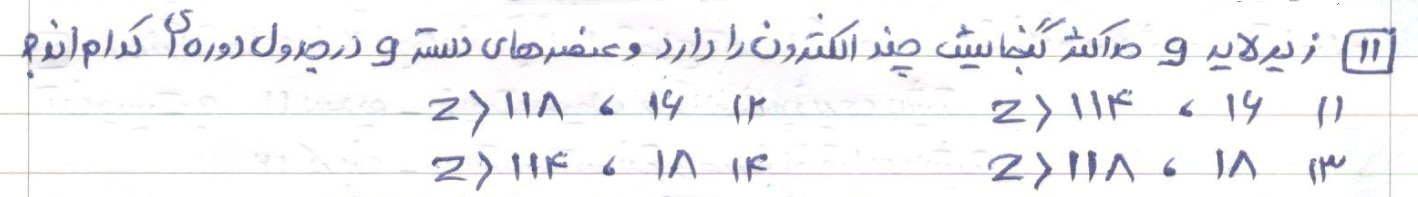 ۱۱ زیرلایه و حداکثر گنجایش چند الکترون را دارد و عنصرهای دسته و در جدول دوره‌ای کدام اند؟
۱) ۱۶ ، Z > ۱۱۴ ۲) ۱۶ ، Z > ۱۱۸
۳) ۱۸ ، Z > ۱۱۸ ۴) ۱۸ ، Z > ۱۱۴